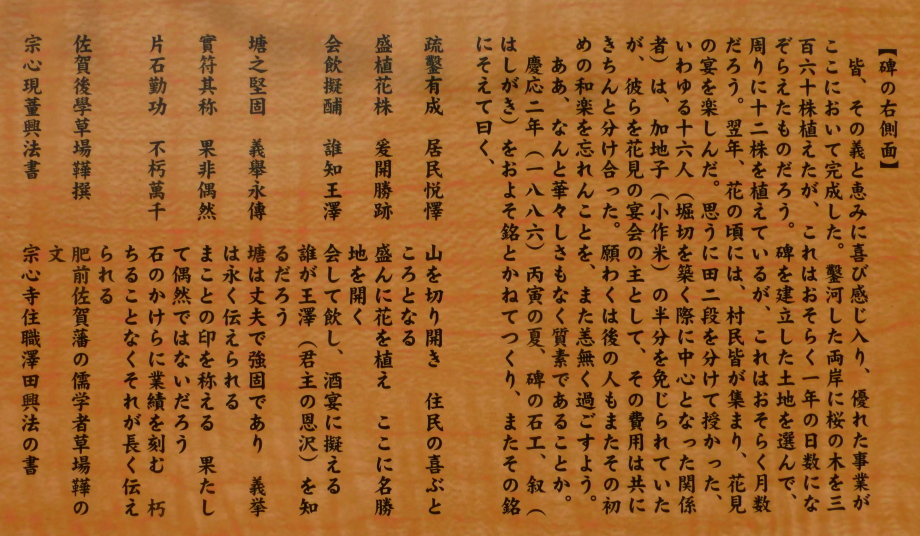 【碑の右側面】
皆、その義と恵みに喜び感じ入り、優れた事業が
ここにおいて完成した。鑿河した両岸に桜の木を三
百六十株植えたが、これはおそらく一年の日数にな
ぞらえたものだろう。碑を建立した土地を選んで、
周りに十二株を植えているが、これはおそらく月数
だろう。翌年、花の頃には、村民皆が集まり、花見
の宴を楽しんだ。思うに田二段を分けて授かった、
いわゆる十六人（堀切を築く際に中心となった関係
者）は、加地子（小作米）の半分を免じられていた
が、彼らを花見の宴会の主として、その費用は共に
きちんと分け合った。願わくは後の人もまたその初
めの和楽を忘れんことを、また恙無く過ごすよう。
ああ、なんと華々しさもなく質素であることか。
慶応二年（一八八六）丙寅の夏、碑の石工、叙（
はしがき）をおよそ銘とかねてつくり、またその銘
にそえて曰く、
疏鑿有成　居民悦懌
山を切り開き　住民の喜ぶと
ころとなる
盛植花株　爰開勝跡
盛んに花を植え　ここに名勝
地を開く
会飲擬酺　誰知王澤
会して飲し、酒宴に擬える
誰が王澤（君主の恩沢）を知
るだろう
塘之堅固　義舉永傳
塘は丈夫で強固であり　義挙
は永く伝えられる
實符其称　果非偶然
まことの印を称える　果たし
て偶然ではないだろう
片石勤功　不朽萬千
石のかけらに業績を刻む　朽
ちることなくそれが長く伝え
られる
佐賀後學草場鞾撰
肥前佐賀藩の儒学者草場鞾の
文
宗心現董興法書
宗心寺住職澤田興法の書